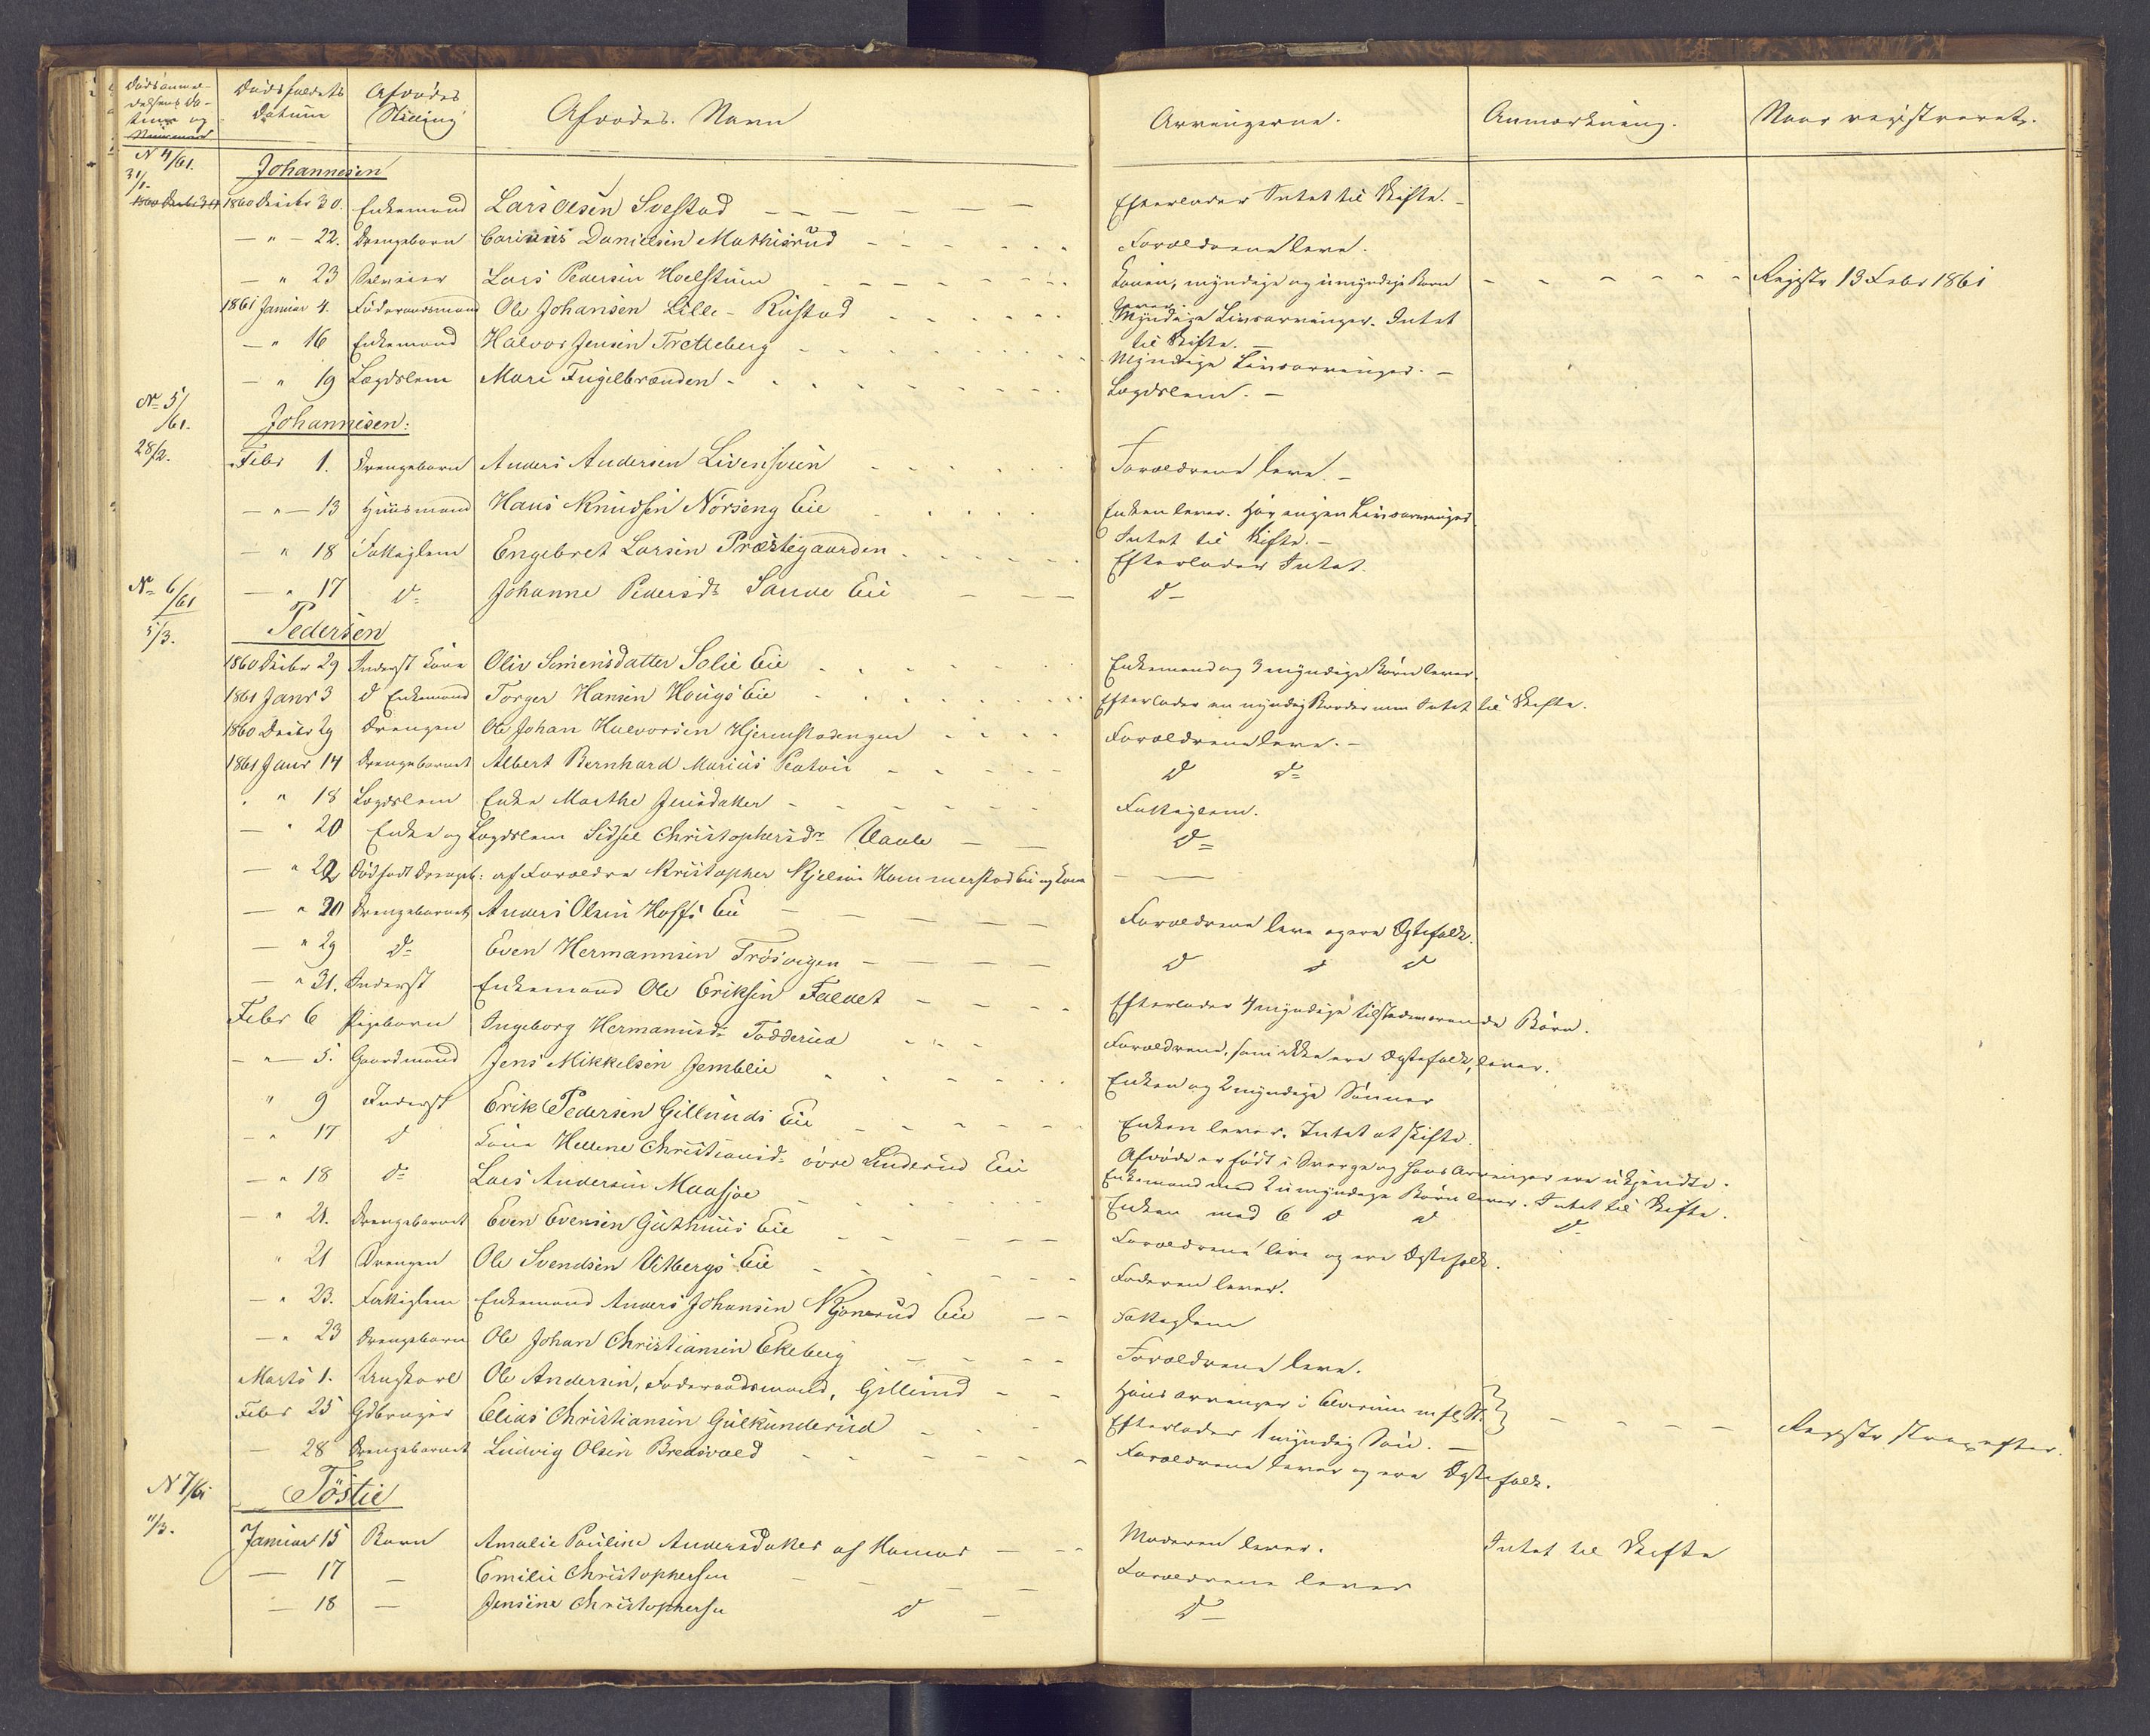 Dødsanmel-
delsens Da-
tum og
Nummer
Dødsfaldets
Datum
Afdødes
Stilling
Afdødes Navn
Arvingerne.
Anmærkning.
Naar registreret.
N 4/61. Johannesen
31/1.
1860 Decbr 30. Enkemand Lars Olsen Svestad — Efterlader Intet til Skifte. —
— " — 22. Drengebarn Carinius Danielsen Mathisrud — Forældrene leve.
— " 23 Selveier Lars Pedersen Hoelstuen — Konen, myndige og umyndige Børn lever. — Registr 13 Febr 1861
1861 Januar 4. Føderaadsmand Ole Johansen Lille-Rustad — Myndige Livsarvinger. Intet
til Skifte. —
— " 16 Enkemand Halvor Jensen Tretteberg — Myndige Livsarvinger. —
— " 19 Lægdslem Mari Fuglebrænden — Lægdslem. —
No 5/61. Johannesen:
28/2.
Febr 1. Drengebarn Anders Andersen — Forældrene leve. —
— " — 13 Huusmand Hans Knudsen Nørseng Eie — Enken lever. Har ingen Livsarvinger
Intet til Skifte. —
— " 18 Fattiglem Engebret Larsen Præstegaarden — Efterlader Intet.
— " 17 do Johanne Pedersdr Sande Eie — do
No 6/61 Pedersen
5/3.
1860 Decbr 29 Inderst Kone Oliv Simensdatter Solie Eie — Enkemand og 3 myndige Børn lever.
1861 Janr 3 do Enkemand Torger Hansen Hougs Eie — Efterlader en myndig Broder men Intet til Skifte.
1860 Decbr 29 Drengen Ole Johan Halvorsen Hjermstadengen — Forældrene leve. —
1861 Janr 14 Drengebarnet Albert Bernhard Marius — do do
" " 18 Lægdslem Enke Marthe Jensdatter — Fattiglem.
— " 20 Enke og Lægdslem Sidsel Christophersdr Vaale — do
— " 22 Dødfødt Drengeb: af Forældre Kristopher Kjelsen Hammerstad Eie og Kone — —
— " 20 Drengebarnet Anders Olsen Hoffs Eie — Forældrene leve og ere Ægtefolk.
— " 29 do Even Hermannsen Trøsvigen — do do do
— " 31. Inderst Enkemand Ole Eriksen Faldet — Efterlader 4 myndige tilstedeværende Børn.
Febr 6 Pigebarn Ingeborg Hermansdr Tødderud — Forældrene, som ikke ere Ægtefolk, lever.
— " — 5. Gaardmand Jens Mikkelsen Jemblie — Enken og 2 myndige Sønner
" 9 Inderst Erik Pedersen Gillunds Eie — Enken lever. Intet at skifte.
— " 17 do Kone Hellene Christiansdr øvre Linderud Eie — Afdøde er født i Sverge og hans Arvinger ere ukjendte.
Enkemand med 2 umyndige Børn lever. Intet til Skifte.
— " 18 do Lars Andersen Maasjøe — Enken med 6 do do do
— " 21. Drengebarnet Even Evensen Guthuus Eie — Forældrene leve og ere Ægtefolk.
" 21 Drengen Ole Svendsen Vitbergs Eie — Faderen lever.
— " 23. Fattiglem Enkemand Anders Johansen Kjonerud Eie — Fattiglem
— " 23 Drengebarn Ole Johan Christiansen Ekeberg — Forældrene leve.
Marts 1. Ungkarl Ole Andersen, Føderaadsmand, Gillund — Hans Arvinger i Elverum
Febr 25 Gdbruger Elias Christiansen Gulkunderud — Efterlader 1 myndig Søn. — Registr strax efter.
— 28 Drengebarnet Ludvig Olsen Bredsvold — Forældrene lever og ere Ægtefolk.
N 7/61 Töstie
11/3.
Januar 15 Barn Amalie Pauline Andersdatter af Hamar — Moderen lever. Intet til Skifte
— 17 — Emilie Christophersen — Forældrene lever
— 18 — Jensine Christophersen do — do